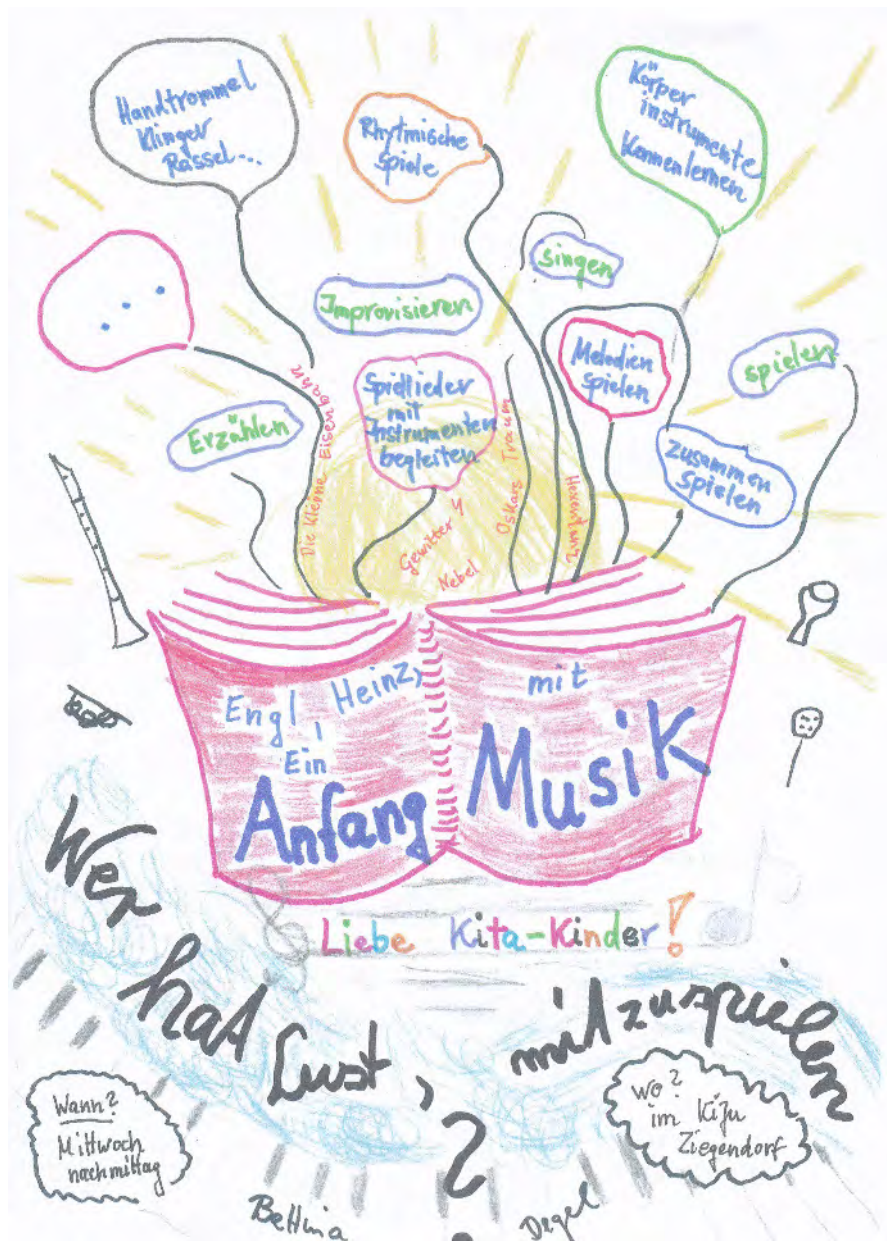 Handtrommel
Klinger
Rassel...
Rhytmische
Spiele
Körper
instrumente
Kennenlernen
...
Improvisieren
singen
Erzählen
Spiellieder
mit
Instrumenten
begleiten
Melodien
spielen
spielen
zusammen
spielen
Die kleine Eisenbahn
Gewitter
Nebel
Oskars Traum
Hexentanz
Engl, Heinz,
Ein
Anfang
mit
Musik
Liebe Kita-Kinder!
Wer hat Lust, mitzuspielen
?
Wann?
Mittwoch
nachmittag
wo?
im Kiju
Ziegendorf
Bettina